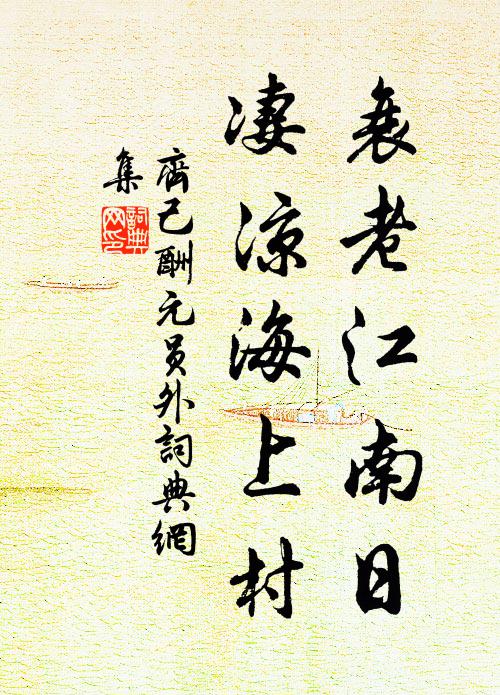 衰老江南日
凄涼海上村
齊己酬元员外詞典網
集
詞典
网印